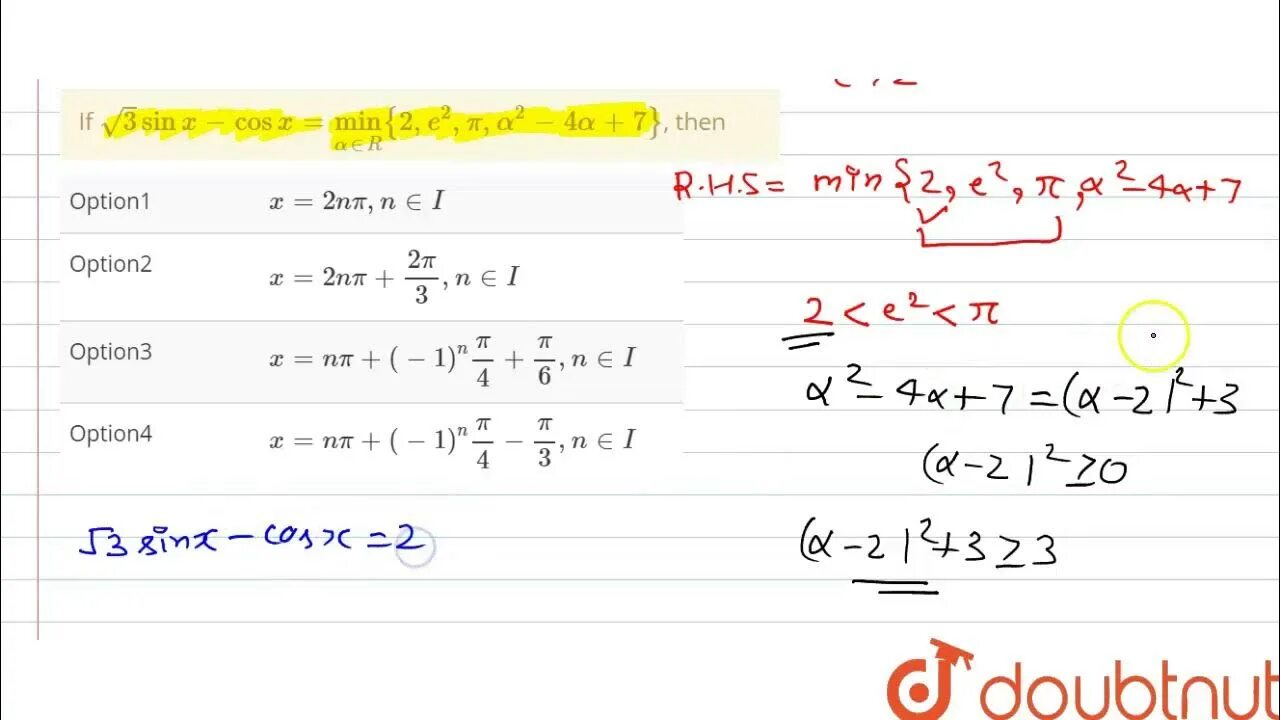 If √3 sin x − cos x = min{2, e², π, α² − 4α + 7}, then
α∈R
Option1 x = 2nπ, n ∈ I
Option2 x = 2nπ + 2π/3, n ∈ I
Option3 x = nπ + (−1)ⁿ π/4 + π/6, n ∈ I
Option4 x = nπ + (−1)ⁿ π/4 − π/3, n ∈ I
√3 sinx − cosx = 2
R.H.S = min{2, e², π, α² − 4α + 7
2 < e² < π
α² − 4α + 7 = (α − 2)² + 3
(α − 2)² ≥ 0
(α − 2)² + 3 ≥ 3
doubtnut